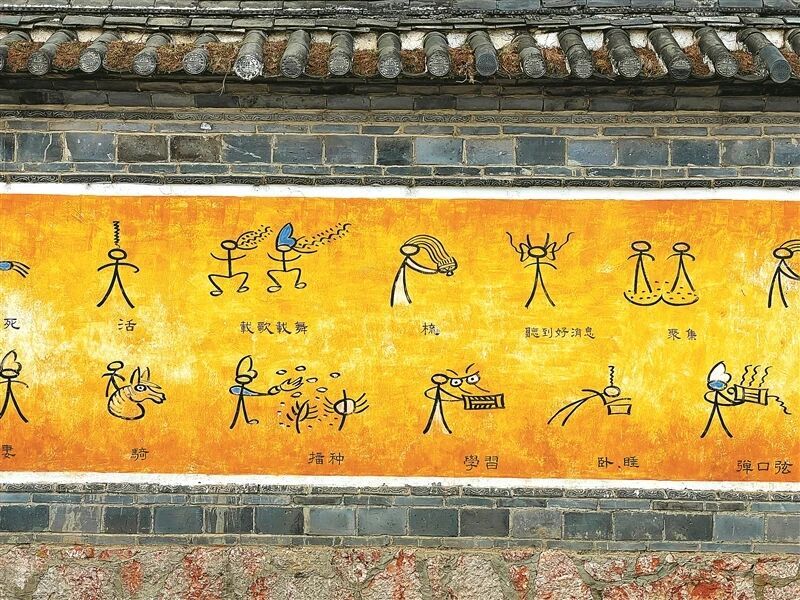 死 活 載歌載舞 梳 聽到好消息 聚集
妻 騎 播种 學習 卧、睡 弹口弦